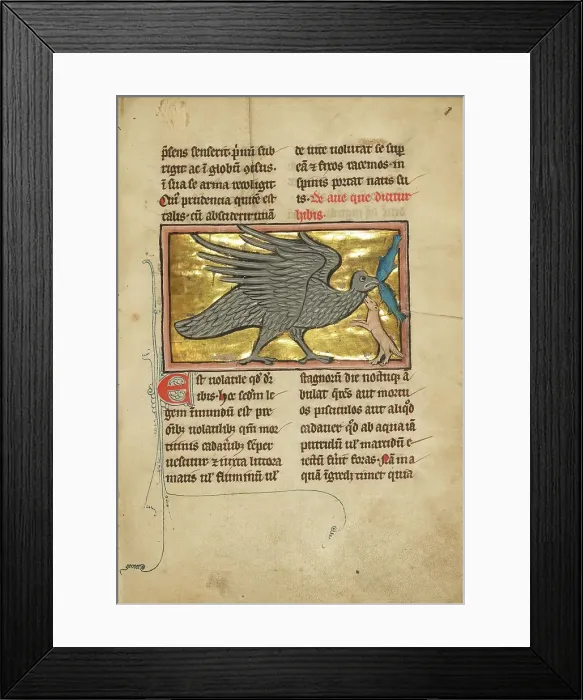 p̄sens senserit. p̄mū sub
rigit ac ī globū ꝯisus.
ī sua se arma recligit.
Cuiꝰ prudencia quite est
talis. cū absciterit uuā
de uite uolutat se sup
eā ⁊ fixos racemos in
spinis portat natis su
is. De aue que dicitur
hibis.
Est uolatile qd̄ dr̄
ibis. hec scdm̄ le
gem īmundū est pre
oīb; uolatilib; qm̄ mor
ticinis cadauib; semper
uescitur ⁊ iuxta littora
maris ul' fluminū ul'
stagnorū die noctuqꝫ ā
bulat q̄rēs aut mortu
os pisciculos aut aliqd
cadauer qd̄ ab aqua iā
putridū ul' marcidū e
iectū fūit foras. Nā in a
quā īgredi timet quia